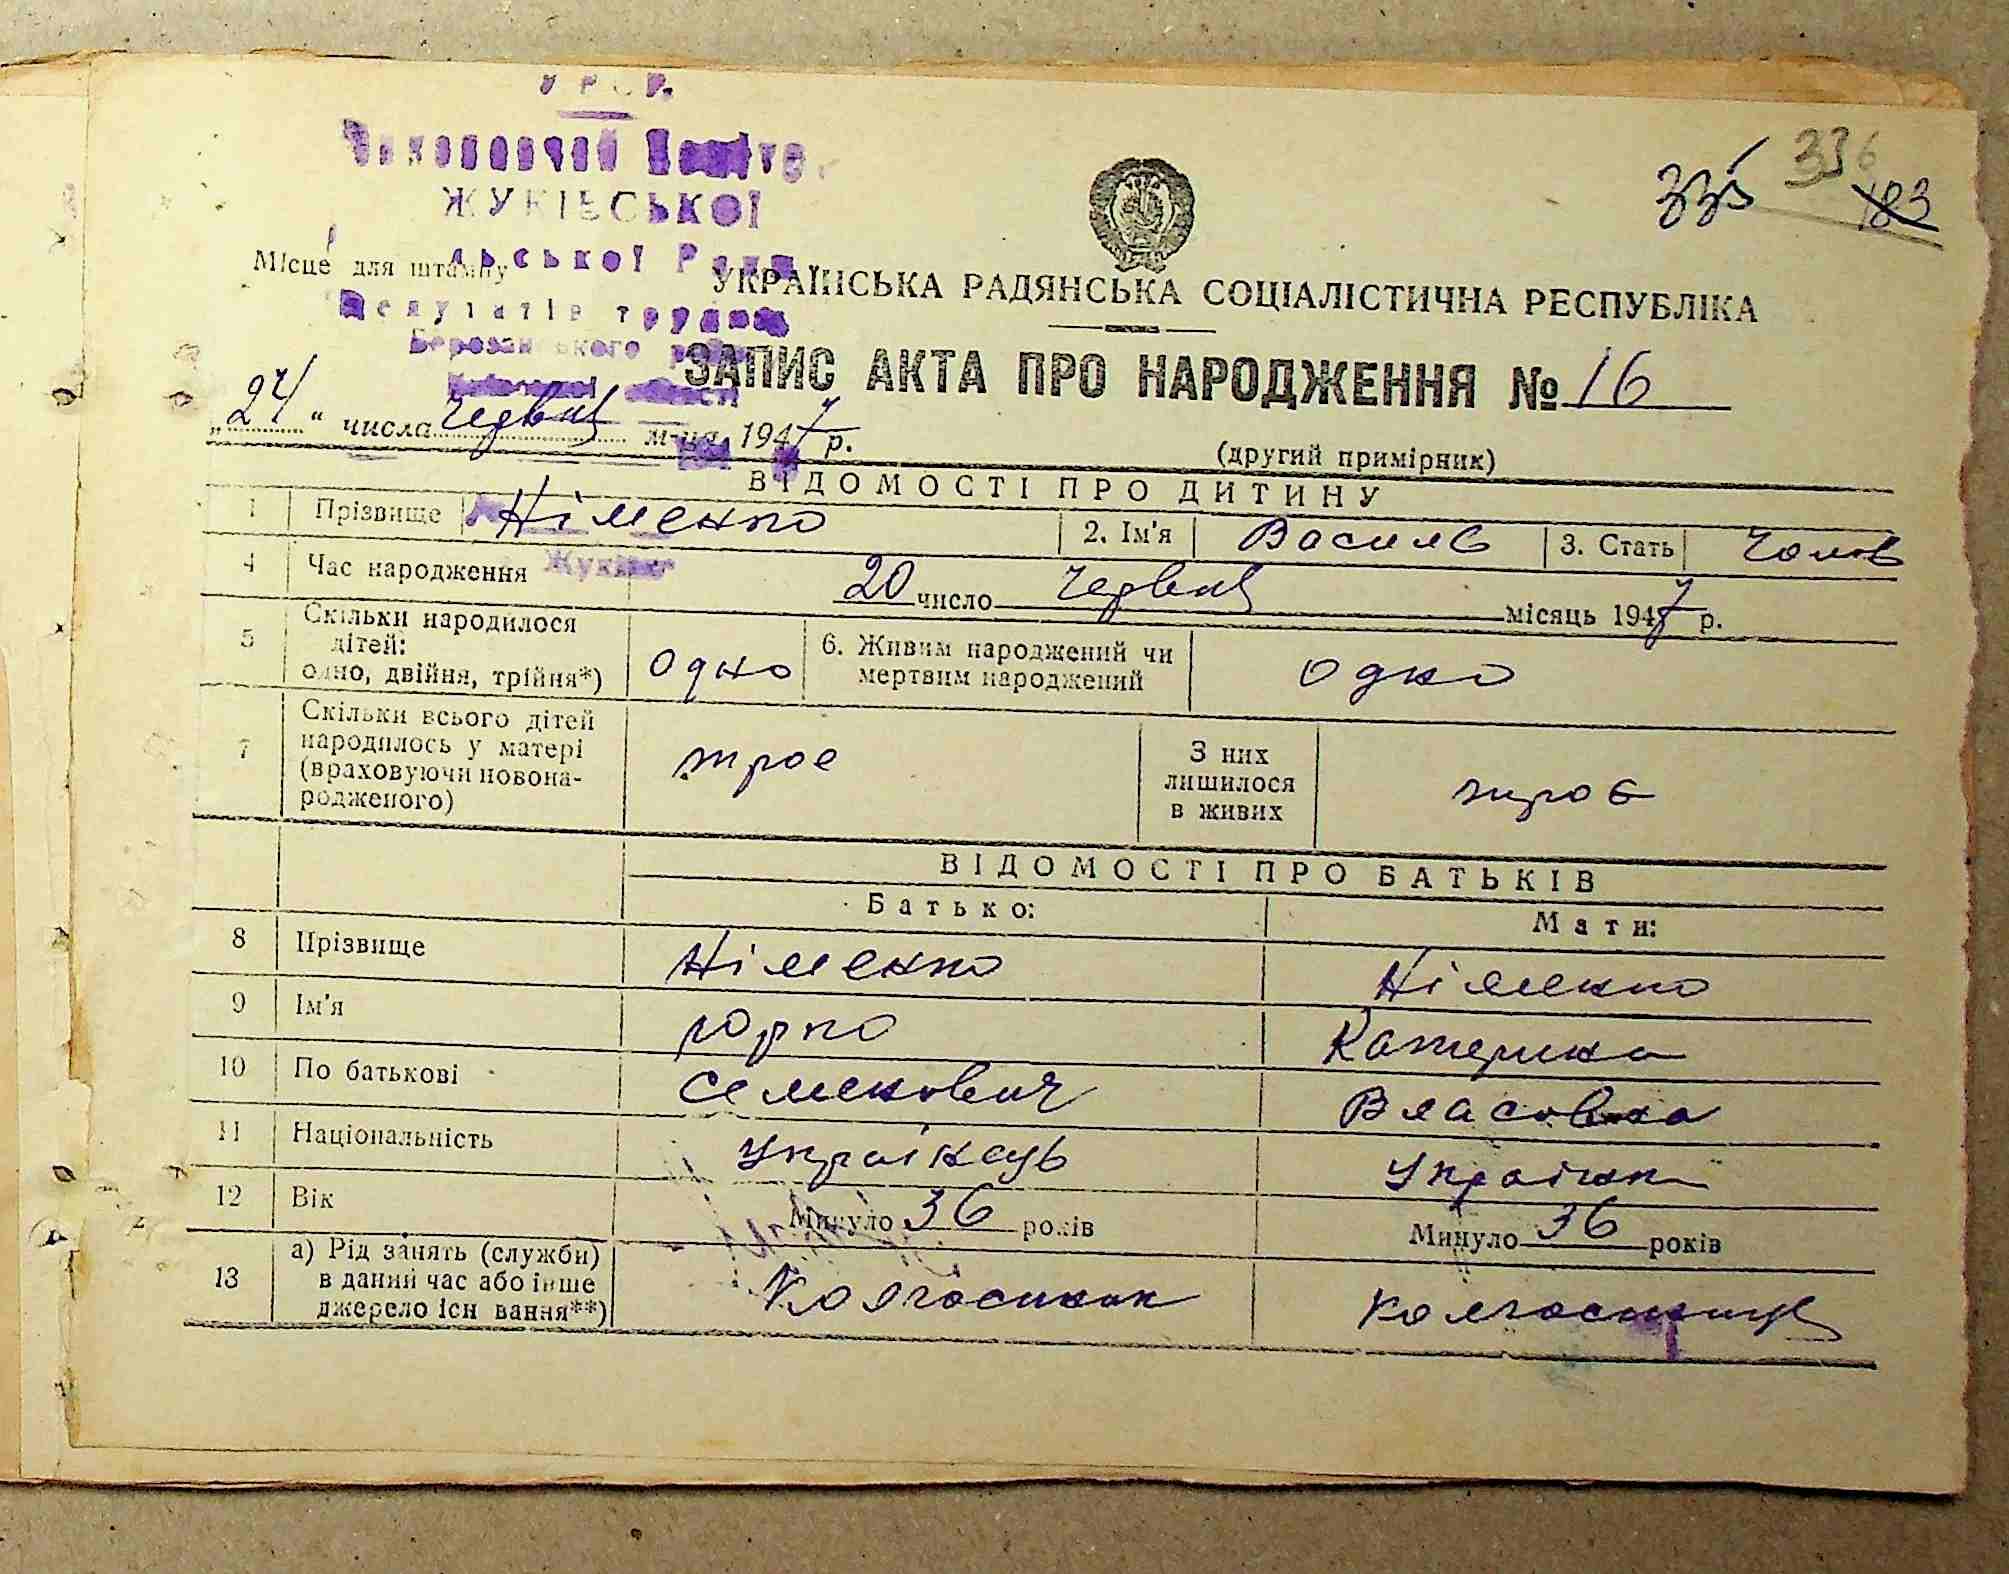 У Р С Р.
Виконавчий Комітет
ЖУКІВСЬКОЇ
336
335
183
Місце для штампу
льської Ради
УКРАЇНСЬКА РАДЯНСЬКА СОЦІАЛІСТИЧНА РЕСПУБЛІКА
Депутатів трудящ
Березанського
ЗАПИС АКТА ПРО НАРОДЖЕННЯ № 16
„24“ числа червня м-ця 1947 р.
(другий примірник)
ВІДОМОСТІ ПРО ДИТИНУ
1 Прізвище Німенко 2. Ім'я Василь 3. Стать Чолов
4 Час народження 20 число червня місяць 1947 р.
Жуківці
5 Скільки народилося
дітей:
одно, двійня, трійня*) одно 6. Живим народжений чи
мертвим народжений одно
7 Скільки всього дітей
народилось у матері
(враховуючи новона-
родженого) троє З них
лишилося
в живих троє
ВІДОМОСТІ ПРО БАТЬКІВ
Батько: Мати:
8 Прізвище Німенко Німенко
9 Ім'я Юрко Катерина
10 По батькові Семенович Власовна
11 Національність Українець Українка
12 Вік Минуло 36 років Минуло 36 років
13 а) Рід занять (служби)
в даний час або інше
джерело існ вання**) Колгоспник колгоспниця